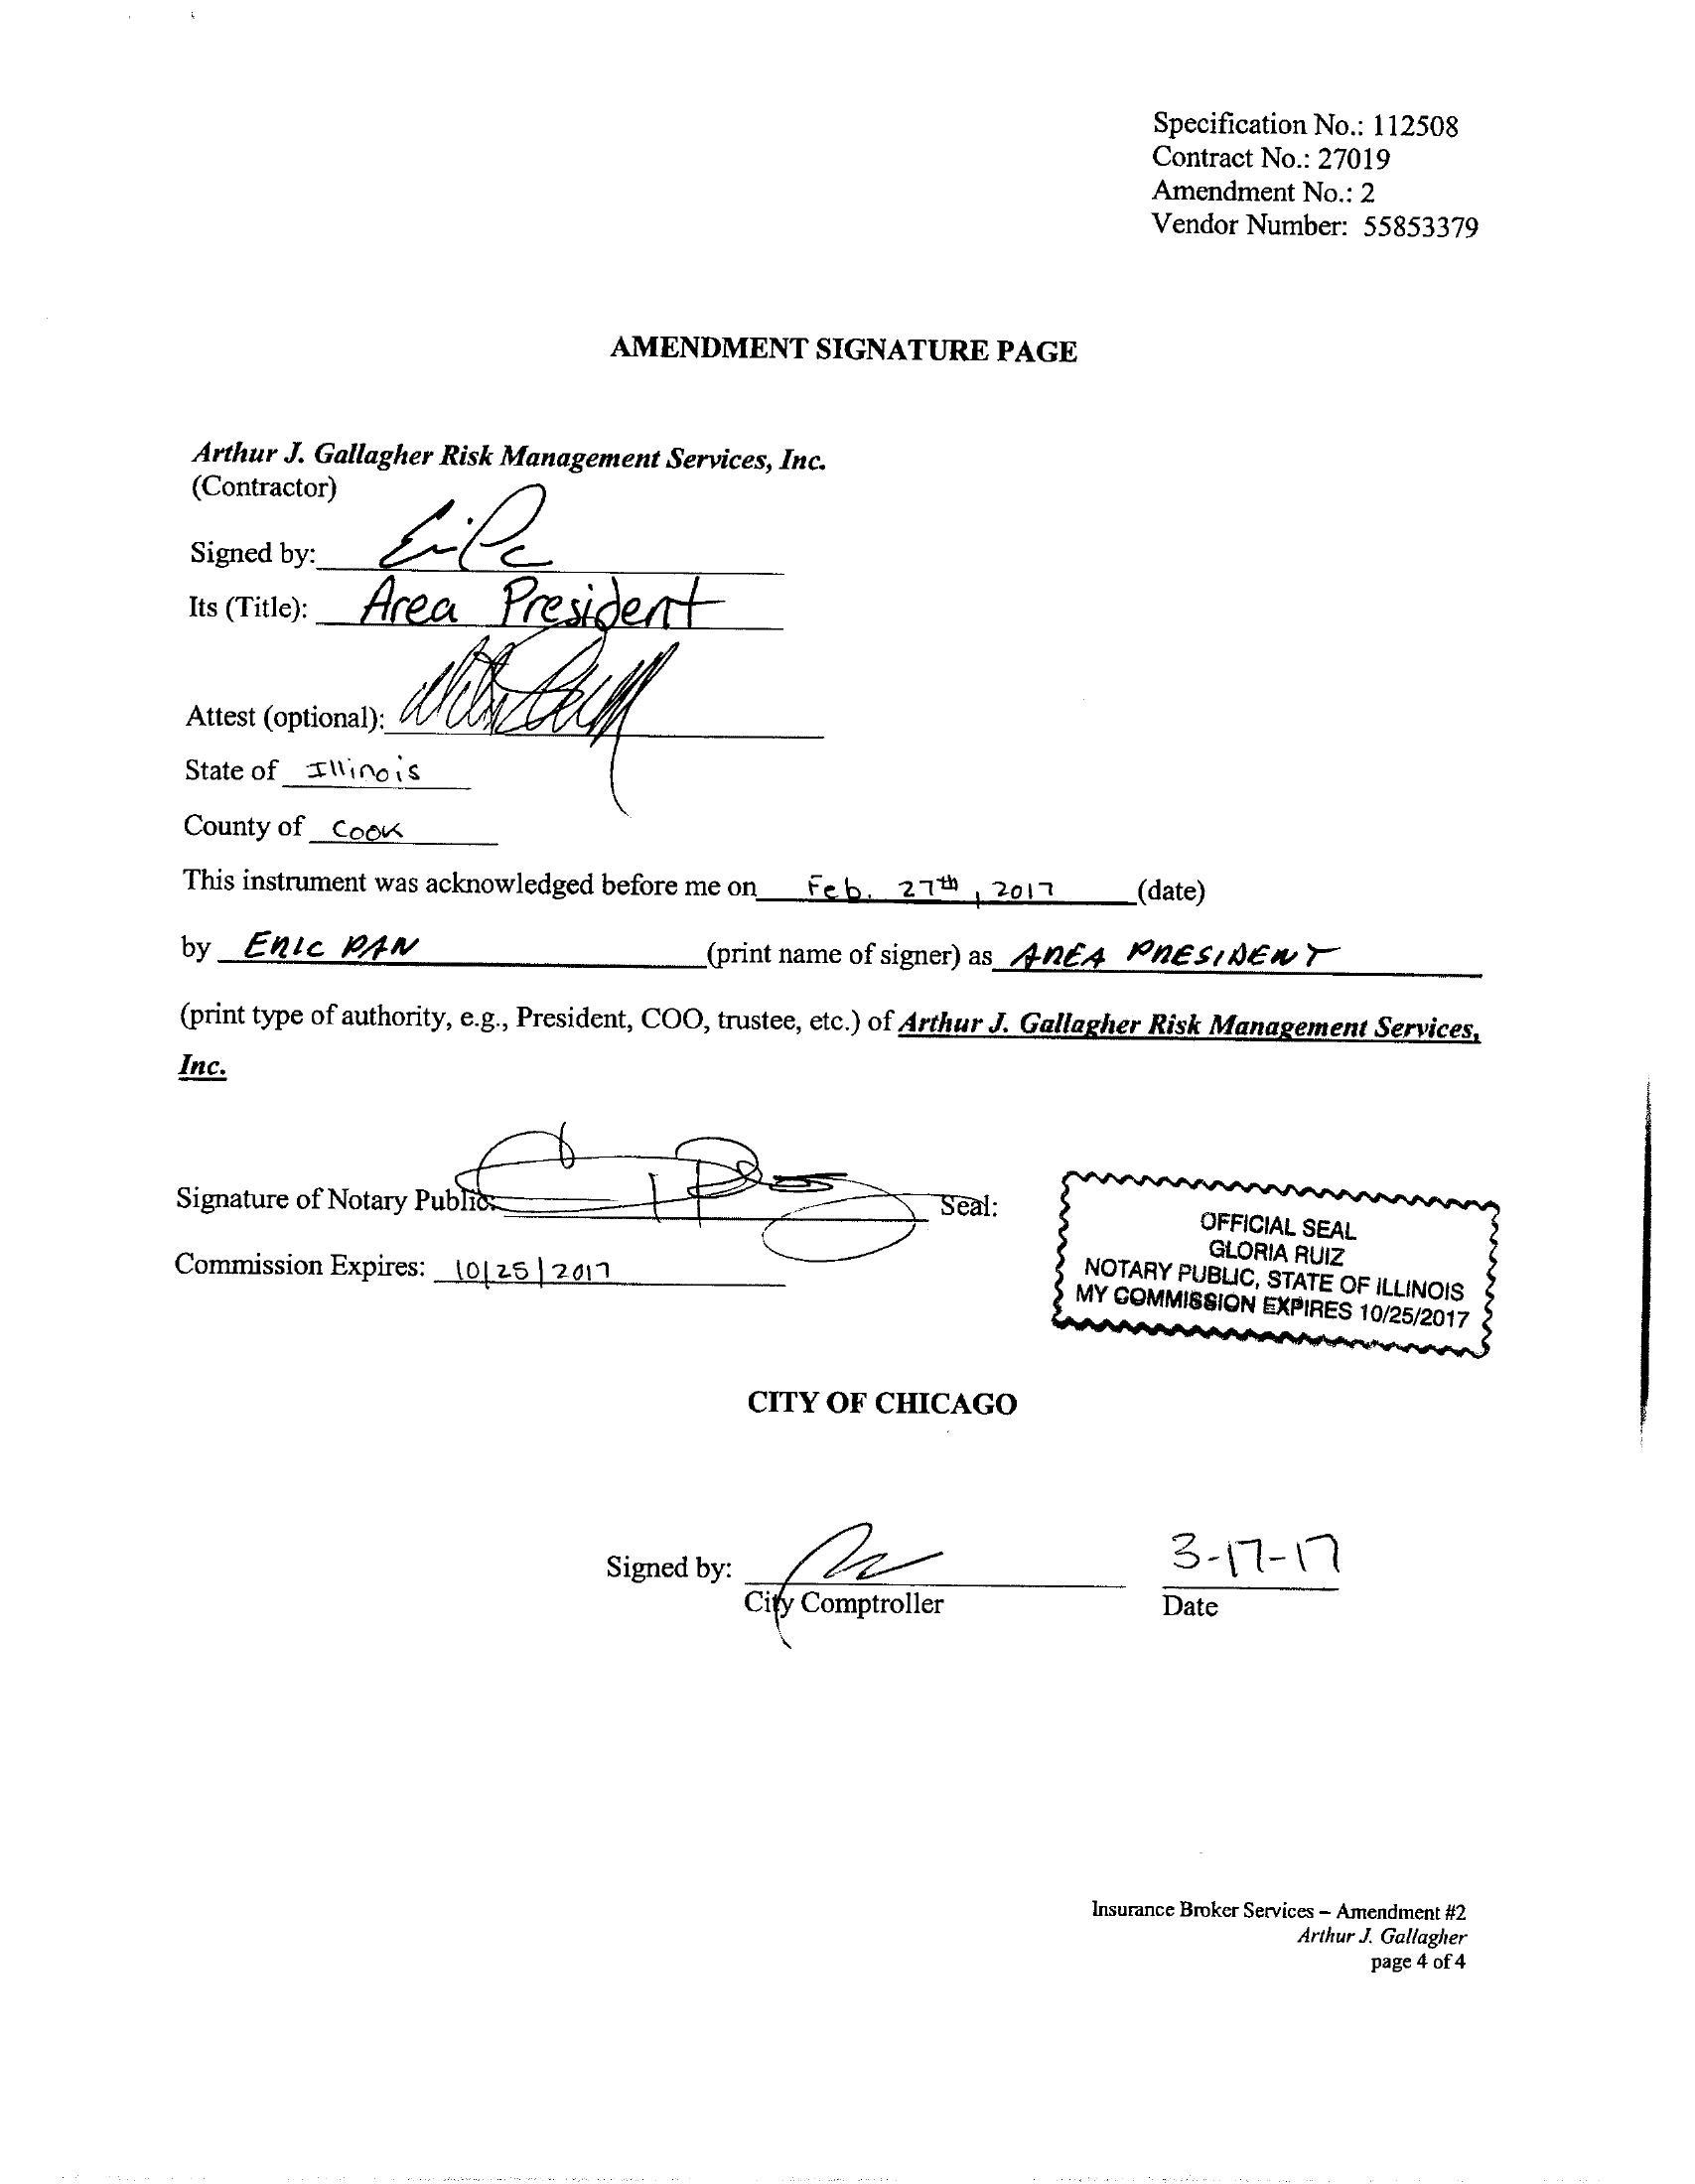 Specification No.: 112508
Contract No.: 27019
Amendment No.: 2
Vendor Number: 55853379
AMENDMENT SIGNATURE PAGE
Arthur J. Gallagher Risk Management Services, Inc.
(Contractor)
Signed by:
Its (Title): Area President
Attest (optional):
State of Illinois
County of Cook
This instrument was acknowledged before me on Feb. 27th, 2017 (date)
by ERIC PAN (print name of signer) as AREA PRESIDENT
(print type of authority, e.g., President, COO, trustee, etc.) of Arthur J. Gallagher Risk Management Services,
Inc.
Signature of Notary Public: Seal:
Commission Expires: 10/25/2017
OFFICIAL SEAL
GLORIA RUIZ
NOTARY PUBLIC, STATE OF ILLINOIS
MY COMMISSION EXPIRES 10/25/2017
CITY OF CHICAGO
Signed by: 3-17-17
City Comptroller Date
Insurance Broker Services – Amendment #2
Arthur J. Gallagher
page 4 of 4